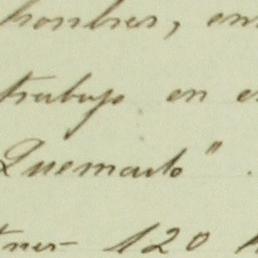 hombres, en
trabajo en e
Quemado".
tner 120